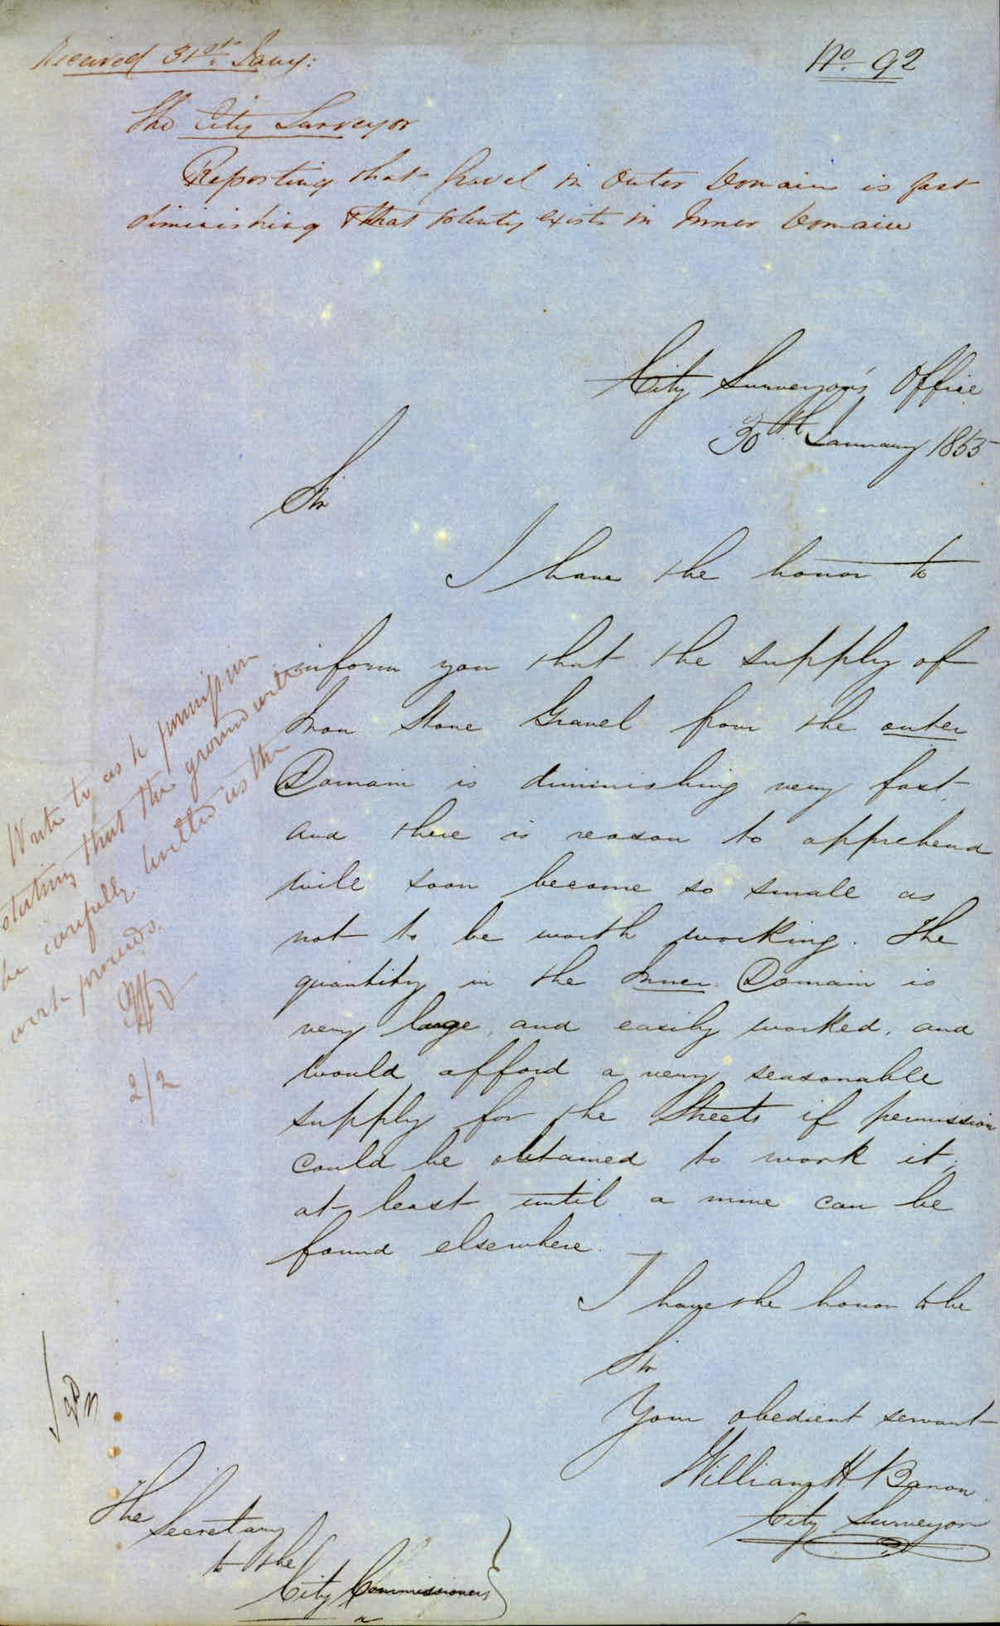 Received 31st Jany:
No. 92
The City Surveyor
Reporting that Gravel in Outer Domain is fast
diminishing & that plenty exists in Inner Domain
City Surveyor's Office
30th January 1855
Sir
I have the honor to
inform you that the supply of
Iron Stone Gravel from the outer
Domain is diminishing very fast
and there is reason to apprehend
will soon become so small as
not to be worth working. The
quantity in the Inner Domain is
very large, and easily worked, and
would afford a very seasonable
supply for the Streets if permission
could be obtained to work it,
at least until a mine can be
found elsewhere.
I have the honor to be
Sir
Your obedient servant
William H Baron
City Surveyor
Write to ask permission
stating that the ground will
be carefully levelled as the
work proceeds.
2/2
The
Secretary
to the
City Commissioners